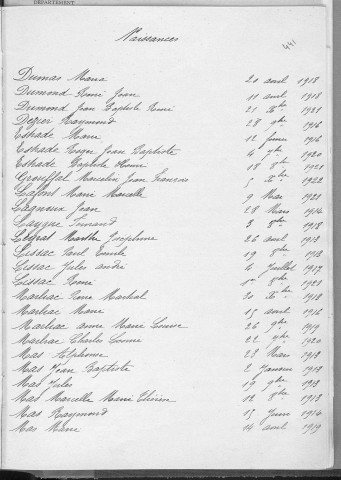 DÉPARTEMENT
Naissances
441
Dumas Maria 20 avril 1918
Dumond René Jean 11 avril 1918
Dumond Jean Baptiste Henri 21 Xbre
Dezier Raymond 28 9bre 1916
Estrade Marie 12 février 1916
Estrade Roger Jean Baptiste 4 7bre 1920
Estrade Baptiste Henri 18 8bre 1921
Crouffal Marcelin Jean François 5 Xbre 1922
Lafont Marie Marcelle 9 Mai 1921
Lagnoux Jean 28 Mars 1914
Layque Fernand 3 8bre 1918
Marthe Joséphine 26 avril 1913
Lissac Paul Emile 19 8bre 1913
Lissac Jules André 4 Juillet 1917
Lissac 1er 8bre 1921
Marliac Martial 20 Xbre 1918
Marliac Marie 15 avril 1916
Marliac Anne Marie Louise 26 9bre 1919
Marliac Charles 22 9bre 1920
Mas Alphonse 23 Mars 1913
Mas Jean Baptiste 2 Janvier 1913
Mas Jules 19 9bre 1913
Mas Marcelle Marie Thérèse 12 8bre 1913
Mas Raymond 15 Juin 1914
Mas Marie 14 avril 1919